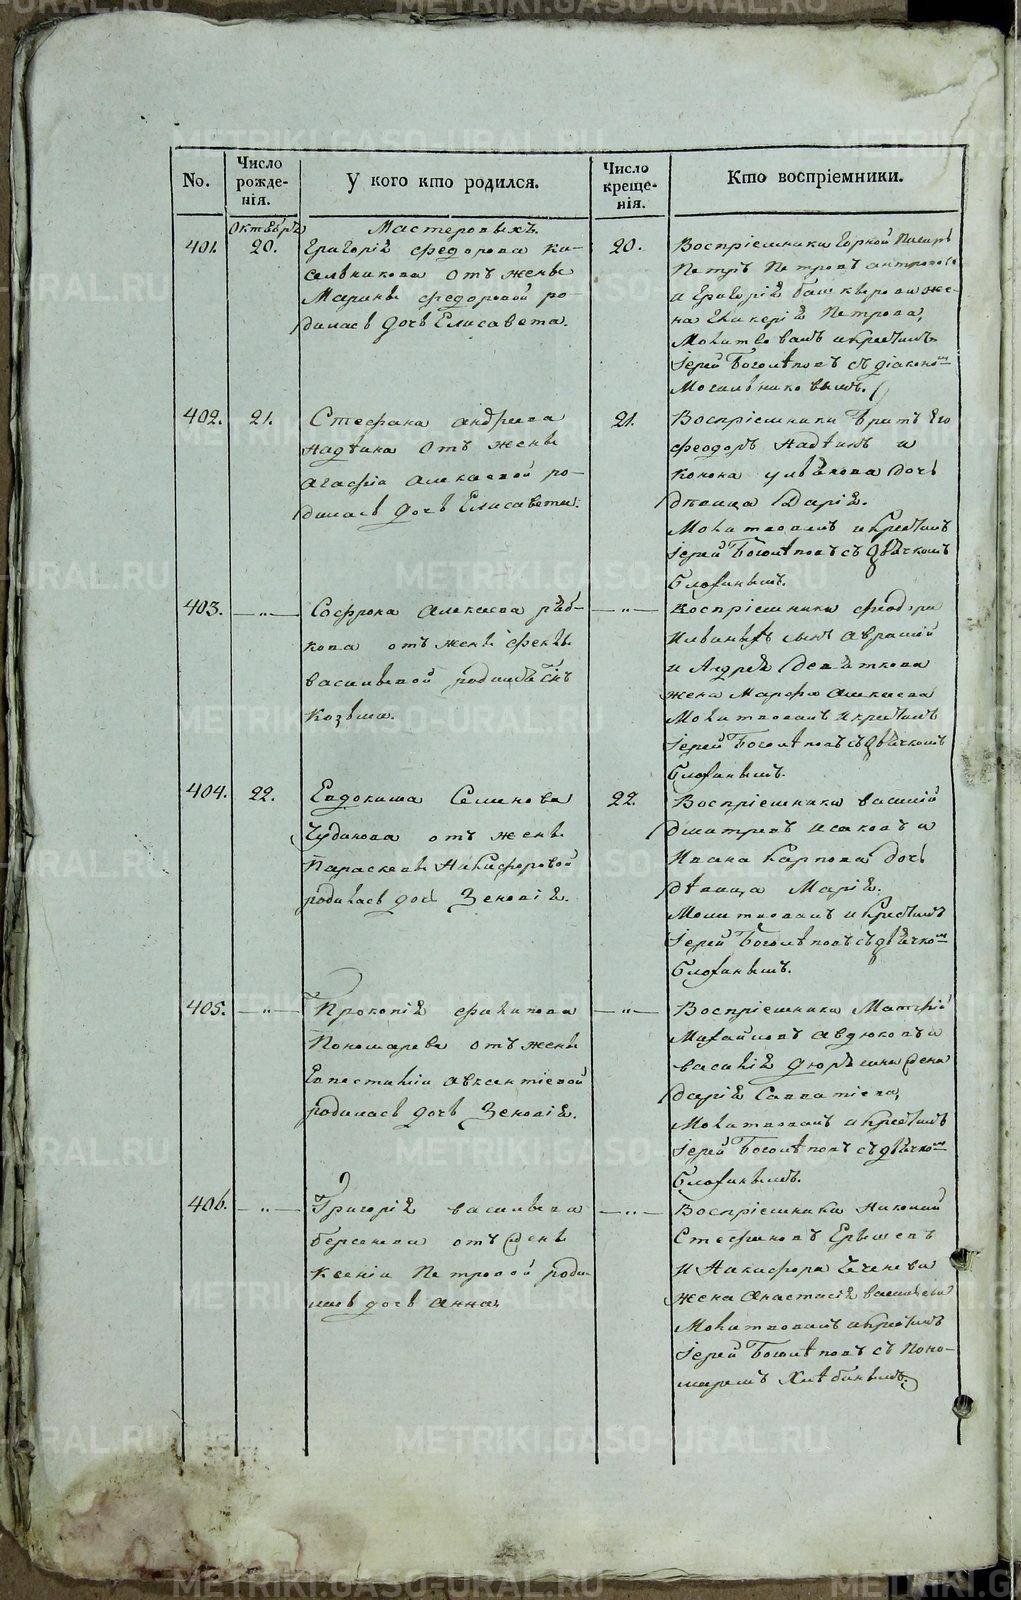 METRIKI.GASO-URAL.RU
No.
Число рожденія.
У кого кто родился.
Число крещенія.
Кто воспріемники.
Октября
Мастеровыхъ.
401.
20.
Григорій Федорова Ки-
сельникова отъ жены
Марины Федоровой ро-
дилась дочь Елисавета.
20.
Воспріемники Горной Писарь
Петръ Петровъ
и Григорій Башкирова же-
на Гликерій Петрова,
Молитвовалъ и крестилъ
Іерей Боголѣповъ съ діакономъ
Могильниковымъ.
402.
21.
Стефана Андреева
отъ жены
Агафіи Алексеевой ро-
дилась дочь Елисавета.
21.
Воспріемники братъ его
Феодоръ и
Конона Ульянова дочь
дѣвица Дарія.
Молитвовалъ и крестилъ
Іерей Боголѣповъ съ дьячкомъ
403.
— „ —
Софрона Алексеева Рыб-
кова отъ жены Феклы
Васильевой родился сынъ
Козьма.
— „ —
Воспріемники Феодора
сынъ Аврамій
и Андрей Девяткова
жена Марфа Алексеева
Молитвовалъ и крестилъ
Іерей Боголѣповъ съ дьячкомъ
404.
22.
Евдокима Семенова
Чудинова отъ жены
Параскевы Никифоровой
родилась дочь Зеновія.
22.
Воспріемники Василій
Дмитревъ Исаковъ и
Ивана Карпова дочь
дѣвица Марія.
Молитвовалъ и крестилъ
Іерей Боголѣповъ съ дьячкомъ
405.
— „ —
Прокопій Филипова
Пономарева отъ жены
Евпестиміи Авксентіевой
родилась дочь Зеновія.
— „ —
Воспріемники Матфей
Михайловъ Авдюковъ и
Василій жена
Дарія Савватіева,
Молитвовалъ и крестилъ
Іерей Боголѣповъ съ дьячкомъ
406.
— „ —
Григорій Васильева
Берсенева отъ жены
Ксеніи Петровой роди-
лась дочь Анна,
— „ —
Воспріемники Николай
Стефановъ Ершевъ
и Никифора
жена Анастасія Васильева
Молитвовалъ и крестилъ
Іерей Боголѣповъ съ Поно-
маремъ Хлѣбинымъ.